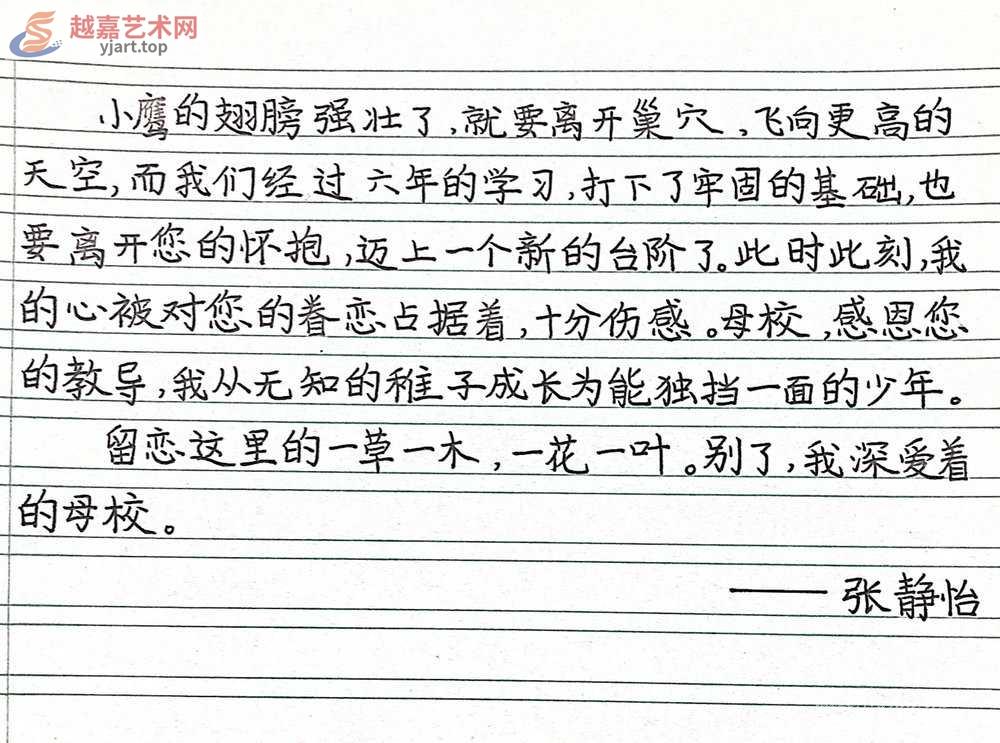 越嘉艺术网
yjart.top
小鹰的翅膀强壮了,就要离开巢穴,飞向更高的
天空,而我们经过六年的学习,打下了牢固的基础,也
要离开您的怀抱,迈上一个新的台阶了。此时此刻,我
的心被对您的眷恋占据着,十分伤感。母校,感恩您
的教导,我从无知的稚子成长为能独挡一面的少年。
留恋这里的一草一木,一花一叶。别了,我深爱着
的母校。
——张静怡